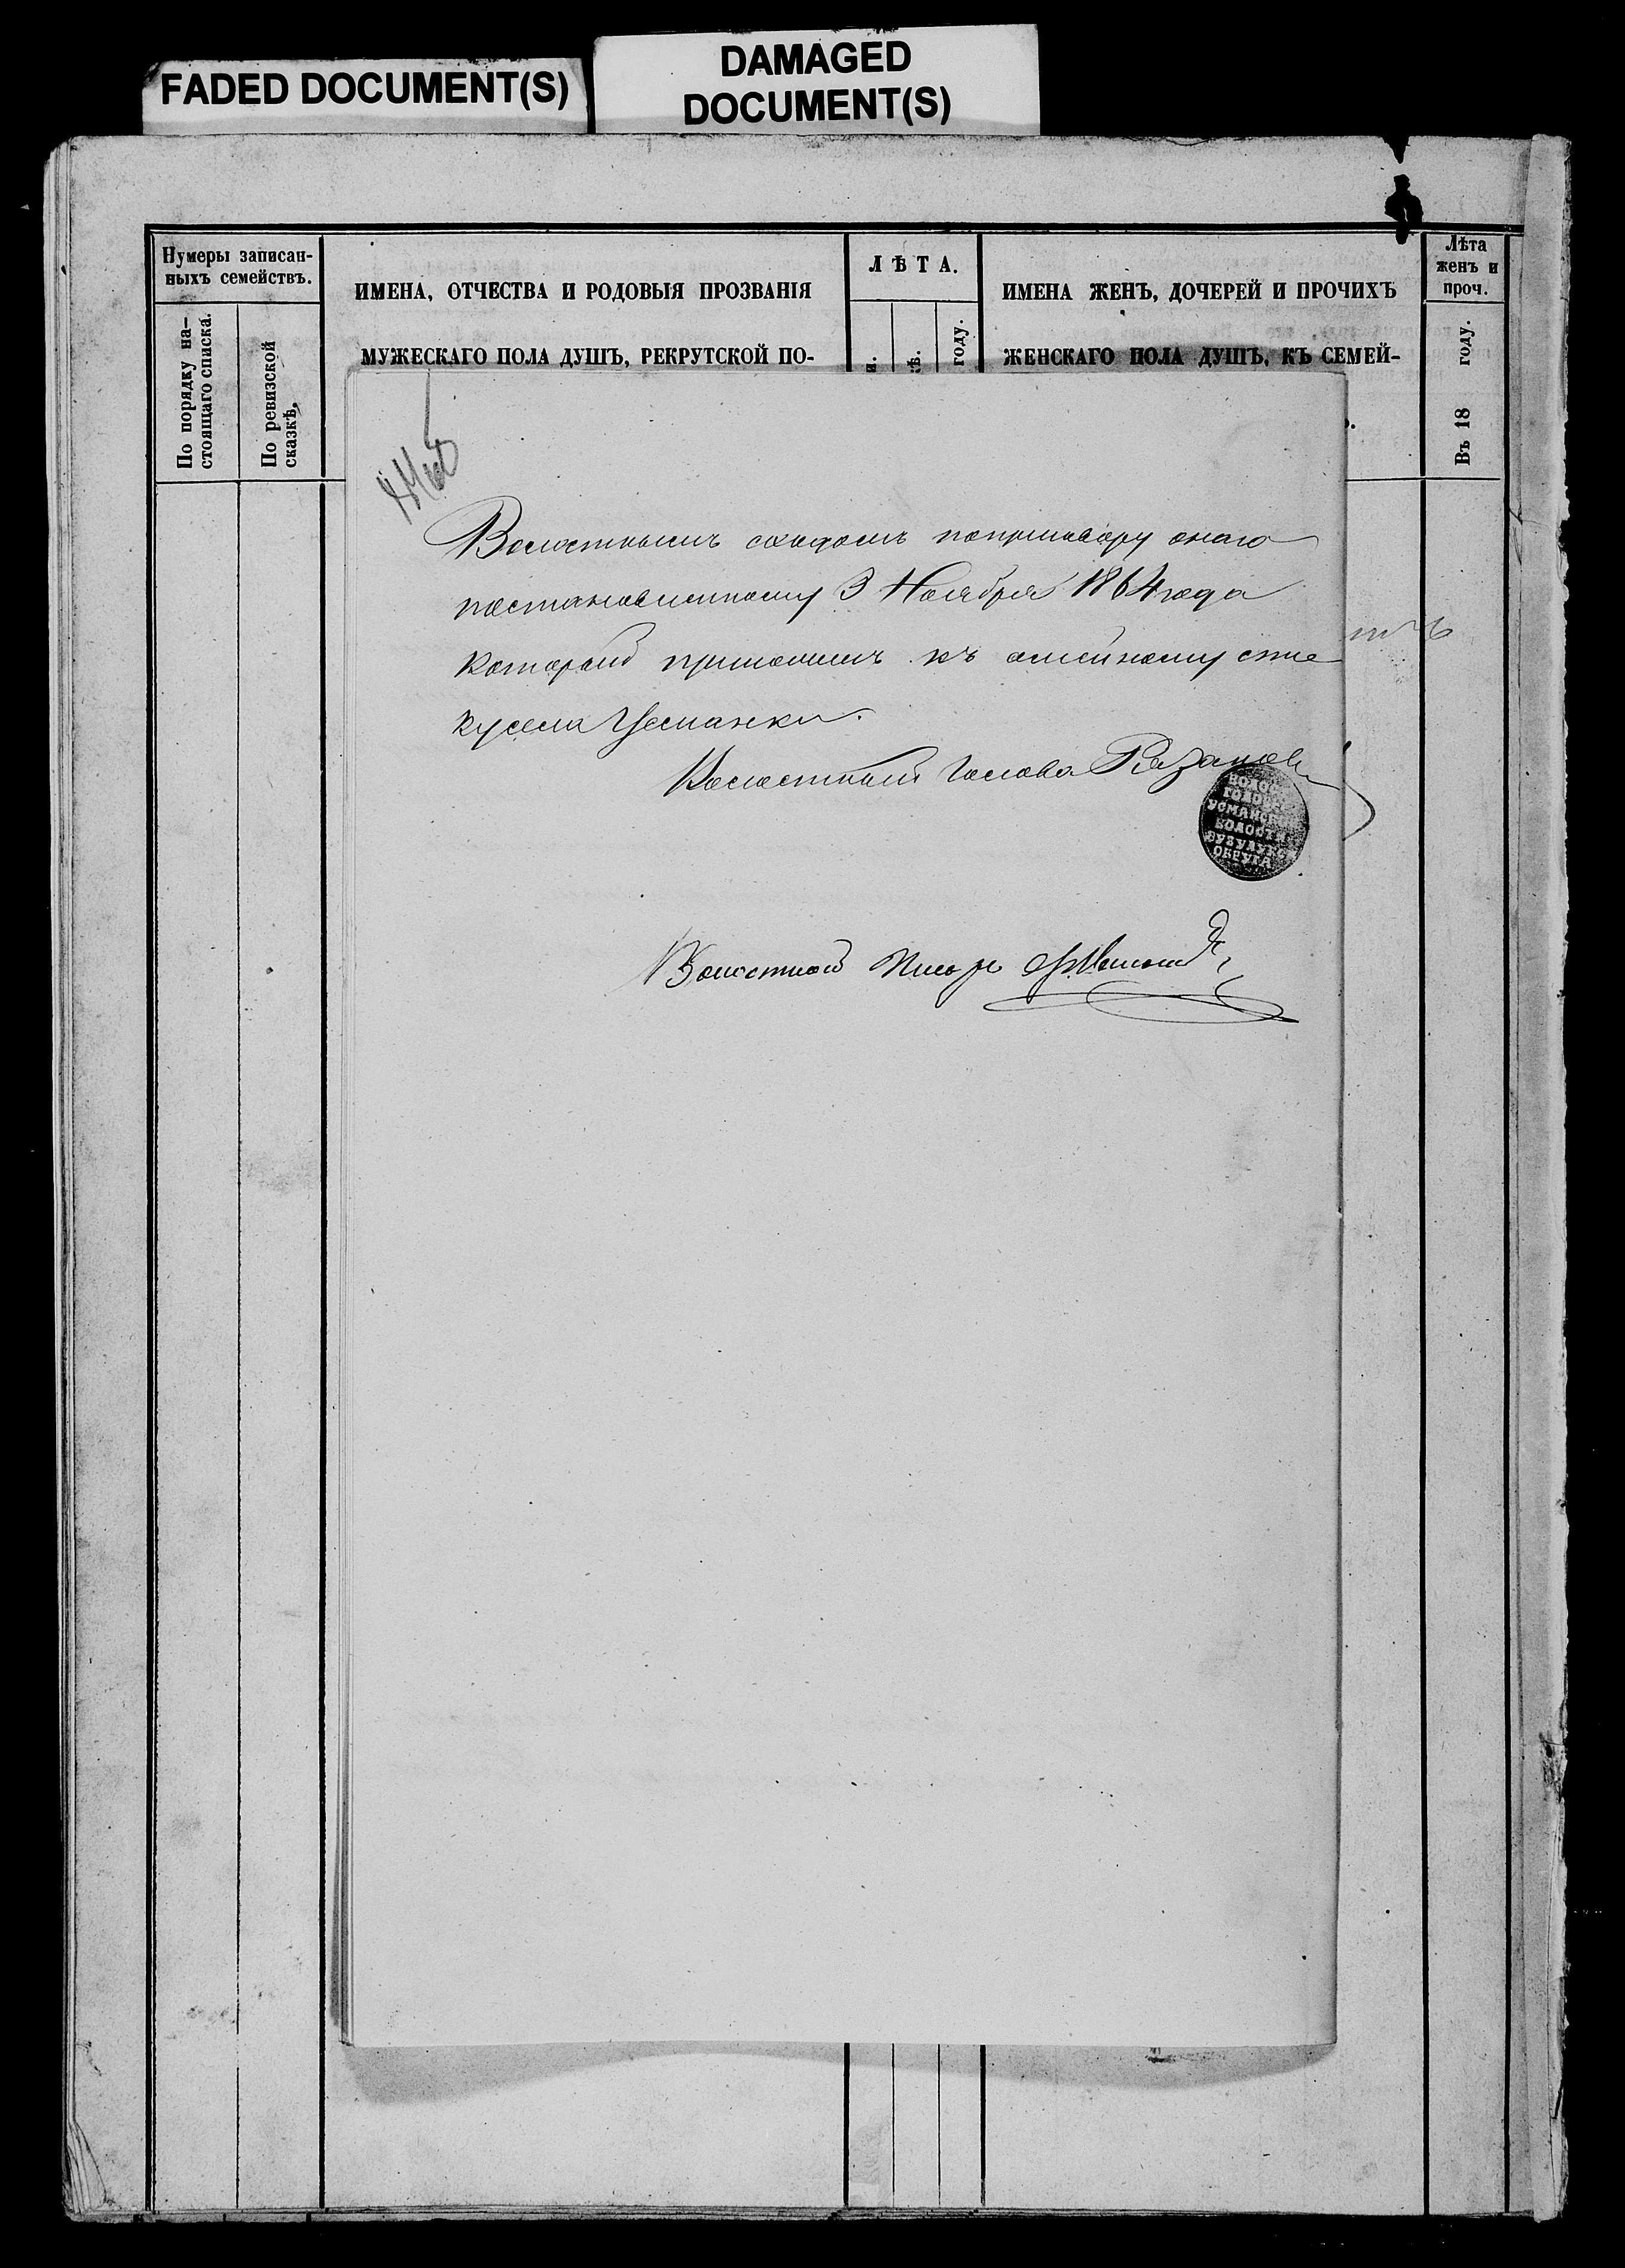 FADED DOCUMENT(S)
DAMAGED
DOCUMENT(S)
Нумеры записан-
ныхъ семействъ.
По порядку на-
стоящаго списка.
По ревизской
сказкѣ.
ИМЕНА, ОТЧЕСТВА И РОДОВЫЯ ПРОЗВАНІЯ
МУЖЕСКАГО ПОЛА ДУШЪ, РЕКРУТСКОЙ ПО-
ЛѢТА.
году.
ИМЕНА ЖЕНЪ, ДОЧЕРЕЙ И ПРОЧИХЪ
ЖЕНСКАГО ПОЛА ДУШЪ, КЪ СЕМЕЙ-
Лѣта
женъ и
проч.
Въ 18 году.
Волостнымъ сходомъ поприговору онаго
постановленному 3 Ноября 1864 года
который приложенъ къ семейному спис
ку села Усманки.
Волостный Голова Рязановъ
ВОЛОС
ГОЛОВЫ
УСМАНСКОЙ
ВОЛОСТИ
БУЗУЛУКС
ОКРУГА
Волостной Писарь